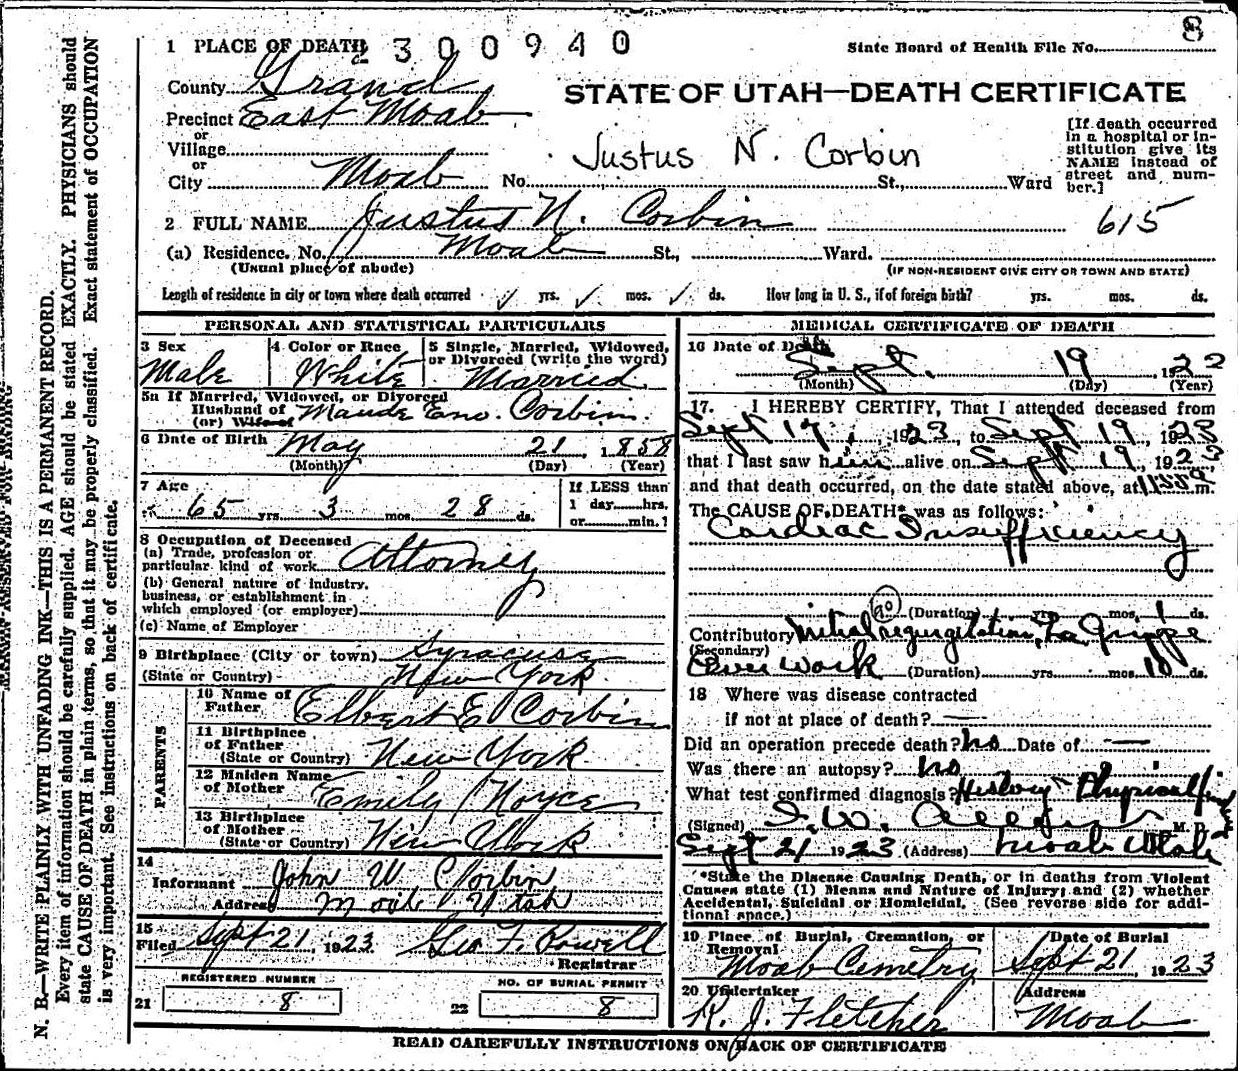 8
1 PLACE OF DEATH
2300940
State Board of Health File No.
County Grand
STATE OF UTAH—DEATH CERTIFICATE
Precinct East Moab
or
Village
or
City Moab No. St., Ward
Justus N. Corbin
[If death occurred
in a hospital or in-
stitution give its
NAME instead of
street and num-
ber.]
2 FULL NAME Justus N. Corbin
615
(a) Residence. No. Moab St., Ward.
(Usual place of abode)
(IF NON-RESIDENT GIVE CITY OR TOWN AND STATE)
Length of residence in city or town where death occurred ✓ yrs. ✓ mos. ✓ ds. How long in U. S., if of foreign birth? yrs. mos. ds.
PERSONAL AND STATISTICAL PARTICULARS
3 Sex
Male
4 Color or Race
White
5 Single, Married, Widowed,
or Divorced (write the word)
Married
5a If Married, Widowed, or Divorced
Husband of Maude Eno. Corbin
(or) Wife of
6 Date of Birth May 21, 1858
(Month) (Day) (Year)
7 Age
65 yrs. 3 mos. 28 ds.
If LESS than
1 day hrs.
or min.?
8 Occupation of Deceased
(a) Trade, profession or
particular kind of work Attorney
(b) General nature of industry,
business, or establishment in
which employed (or employer)
(c) Name of Employer
9 Birthplace (City or town) Syracuse
(State or Country) New York
PARENTS
10 Name of
Father Elbert E Corbin
11 Birthplace
of Father
(State or Country) New York
12 Maiden Name
of Mother Emily Noyce
13 Birthplace
of Mother
(State or Country) New York
14
Informant John W Corbin
Address Moab Utah
15
Filed Sept 21, 1923 Geo F. Powell
Registrar
REGISTERED NUMBER
21 8
NO. OF BURIAL PERMIT
22 8
MEDICAL CERTIFICATE OF DEATH
16 Date of Death
Sept. 19 1923
(Month) (Day) (Year)
17. I HEREBY CERTIFY, That I attended deceased from
Sept 17, 1923, to Sept 19, 1923
that I last saw him alive on Sept 19, 1923
and that death occurred, on the date stated above, at m.
The CAUSE OF DEATH* was as follows:
Cardiac Insufficiency
90
(Duration) yrs. mos. 1 ds.
Contributory Mitral regurgitation, La Grippe
(Secondary)
Over work (Duration) yrs. mos. 10 ds.
18 Where was disease contracted
if not at place of death? —
Did an operation precede death? no Date of —
Was there an autopsy? no
What test confirmed diagnosis? History - Physical findings
(Signed) I. W. Allen M. D.
Sept 21 1923 (Address) Moab Utah
*State the Disease Causing Death, or in deaths from Violent
Causes state (1) Means and Nature of Injury; and (2) whether
Accidental, Suicidal or Homicidal. (See reverse side for addi-
tional space.)
19 Place of Burial, Cremation, or
Removal
Moab Cemetry
Date of Burial
Sept 21, 1923
20 Undertaker
R. J. Fletcher
Address
Moab
READ CAREFULLY INSTRUCTIONS ON BACK OF CERTIFICATE
N. B.—WRITE PLAINLY WITH UNFADING INK—THIS IS A PERMANENT RECORD.
Every item of information should be carefully supplied. AGE should be stated EXACTLY. PHYSICIANS should
state CAUSE OF DEATH in plain terms, so that it may be properly classified. Exact statement of OCCUPATION
is very important. See instructions on back of certificate.